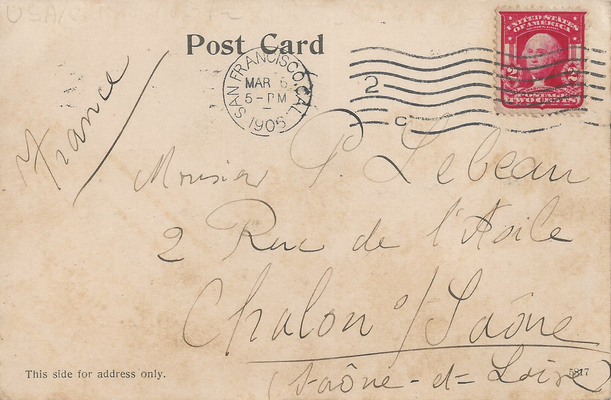 Post Card
SAN FRANCISCO, CAL.
MAR 6
5-PM
1905
2
C
UNITED STATES
OF AMERICA
POSTAGE
TWO CENTS
France
Monsier P. Lebeau
2 Rue de l'Asile
Chalon s/ Saône
(Saône-et-Loire)
This side for address only.
5817